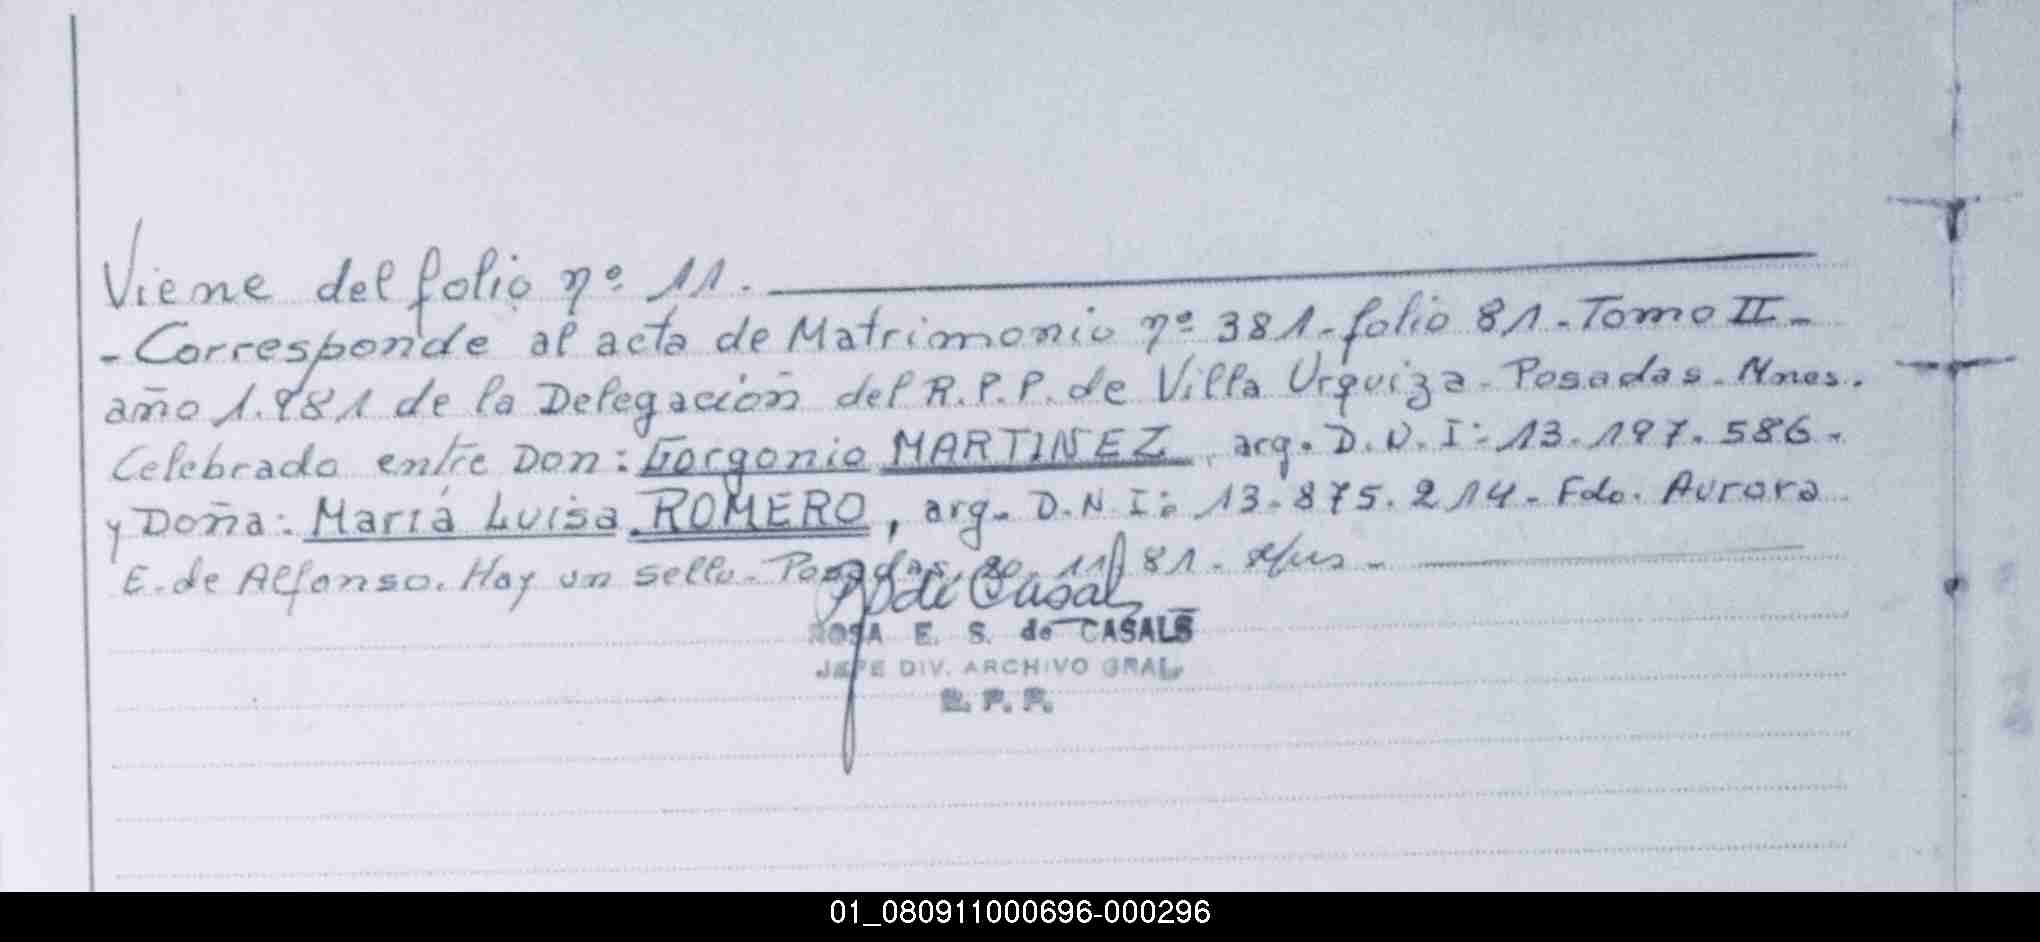 Viene del folio nº 11.
- Corresponde al acta de Matrimonio nº 381 - folio 81 - Tomo II -
año 1.981 de la Delegación del R.P.P. de Villa Urquiza - Posadas - Mnes.
Celebrado entre Don: Gorgonio MARTINEZ, arg. D.N.I: 13.197.586 -
y Doña: María Luisa ROMERO, arg. D.N.I: 13.875.214 - Fdo. Aurora
E. de Alfonso. Hay un sello - Posadas 11/81 -
de Casals
ROSA E. S. de CASALS
JEFE DIV. ARCHIVO GRAL.
R. P. P.
01_080911000696-000296